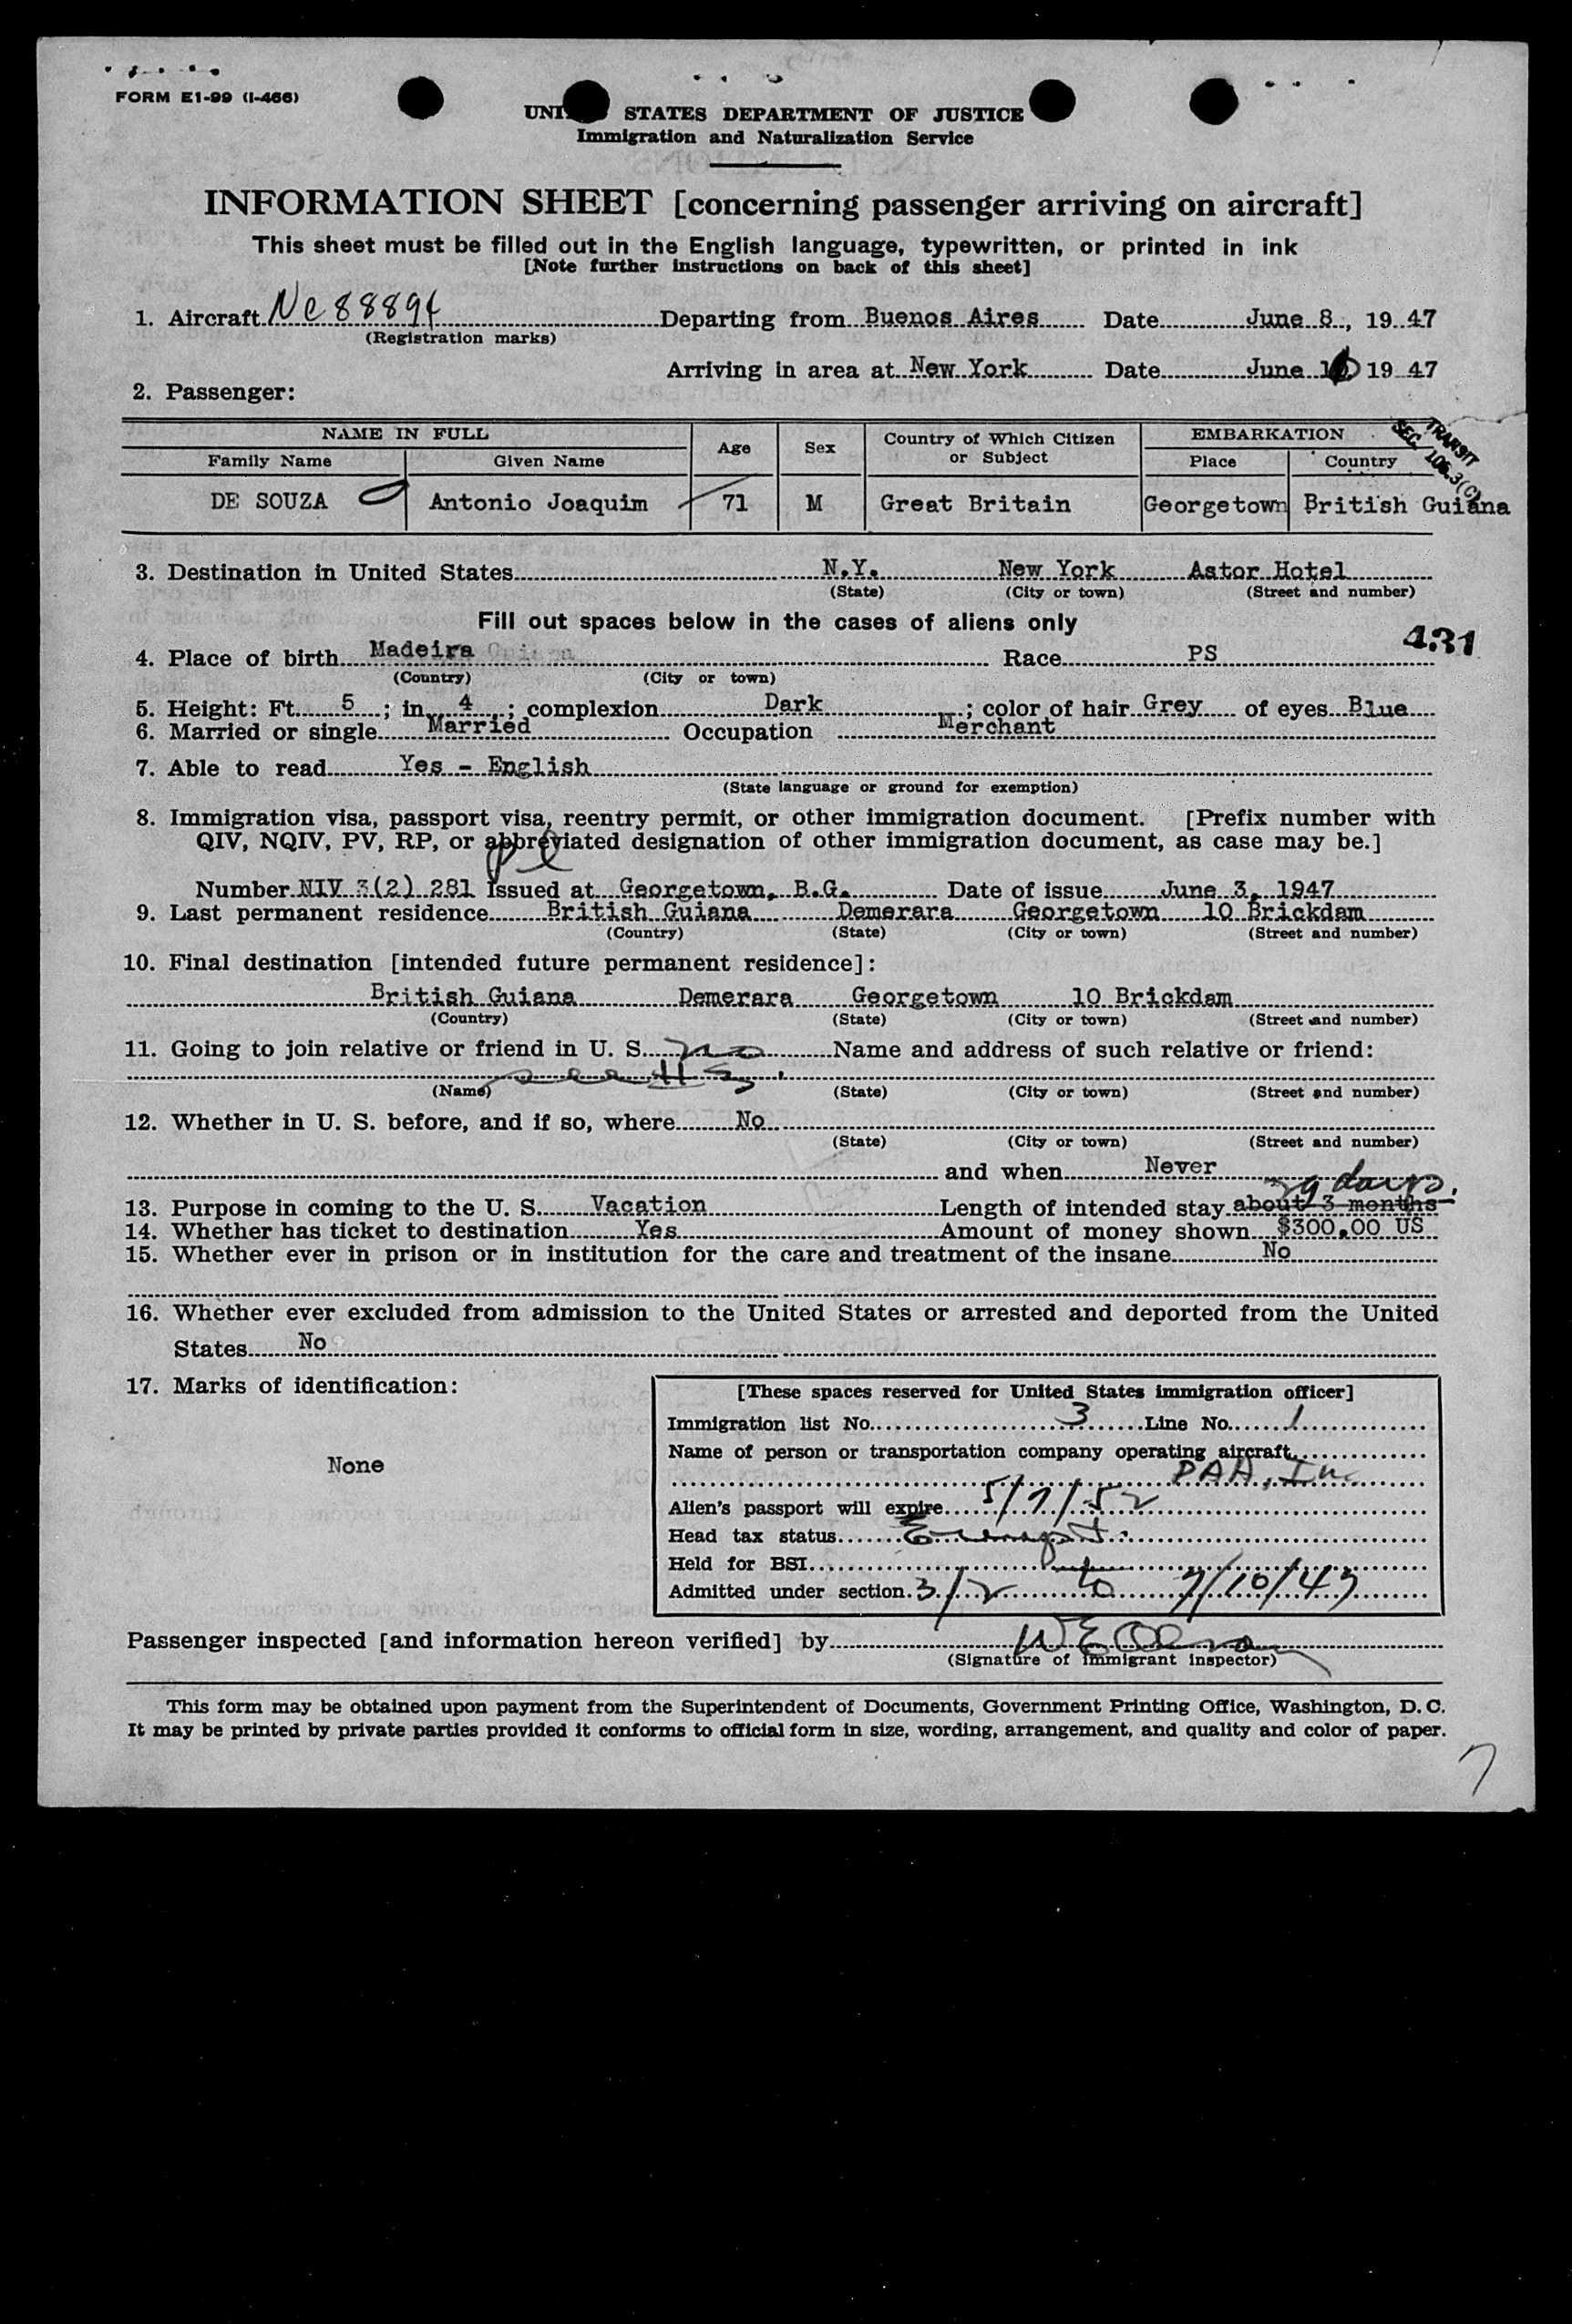 FORM E1-99 (I-466)
UNI STATES DEPARTMENT OF JUSTICE
Immigration and Naturalization Service
INFORMATION SHEET [concerning passenger arriving on aircraft]
This sheet must be filled out in the English language, typewritten, or printed in ink
[Note further instructions on back of this sheet]
1. Aircraft Nc 8889 Departing from Buenos Aires Date June 8, 19 47
(Registration marks)
Arriving in area at New York Date June 19 47
2. Passenger:
NAME IN FULL Age Sex Country of Which Citizen or Subject EMBARKATION
TRANSIT
SEC. 106.3(C)
Family Name Given Name Place Country
DE SOUZA Antonio Joaquim 71 M Great Britain Georgetown British Guiana
3. Destination in United States N.Y. New York Astor Hotel
(State) (City or town) (Street and number)
Fill out spaces below in the cases of aliens only
431
4. Place of birth Madeira Race PS
(Country) (City or town)
5. Height: Ft. 5 ; in. 4 ; complexion Dark ; color of hair Grey of eyes Blue
6. Married or single Married Occupation Merchant
7. Able to read Yes - English
(State language or ground for exemption)
8. Immigration visa, passport visa, reentry permit, or other immigration document. [Prefix number with
QIV, NQIV, PV, RP, or abbreviated designation of other immigration document, as case may be.]
Number NIV 3(2) 281 Issued at Georgetown, B.G. Date of issue June 3, 1947
9. Last permanent residence British Guiana Demerara Georgetown 10 Brickdam
(Country) (State) (City or town) (Street and number)
10. Final destination [intended future permanent residence]:
British Guiana Demerara Georgetown 10 Brickdam
(Country) (State) (City or town) (Street and number)
11. Going to join relative or friend in U. S. no Name and address of such relative or friend:
see #3.
(Name) (State) (City or town) (Street and number)
12. Whether in U. S. before, and if so, where No
(State) (City or town) (Street and number)
and when Never
29 days.
13. Purpose in coming to the U. S. Vacation Length of intended stay about 3 months
14. Whether has ticket to destination Yes Amount of money shown $300.00 US
15. Whether ever in prison or in institution for the care and treatment of the insane No
16. Whether ever excluded from admission to the United States or arrested and deported from the United
States No
17. Marks of identification:
None
[These spaces reserved for United States immigration officer]
Immigration list No. 3 Line No. 1
Name of person or transportation company operating aircraft
PAA, Inc
Alien's passport will expire 5/7/52
Head tax status Exempt.
Held for BSI
Admitted under section 3/2 to 7/10/47
Passenger inspected [and information hereon verified] by
(Signature of immigrant inspector)
This form may be obtained upon payment from the Superintendent of Documents, Government Printing Office, Washington, D. C.
It may be printed by private parties provided it conforms to official form in size, wording, arrangement, and quality and color of paper.
7